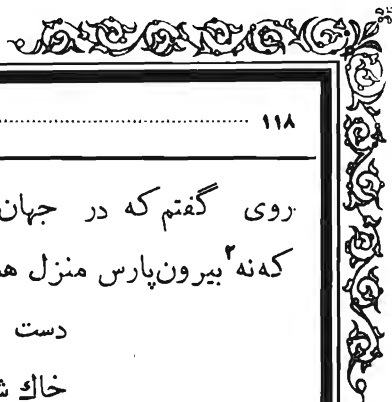 ۱۱۸
روی گفتم که در جهان
که‌نه۲ بیرون‌پارس منزل
دست
خاك